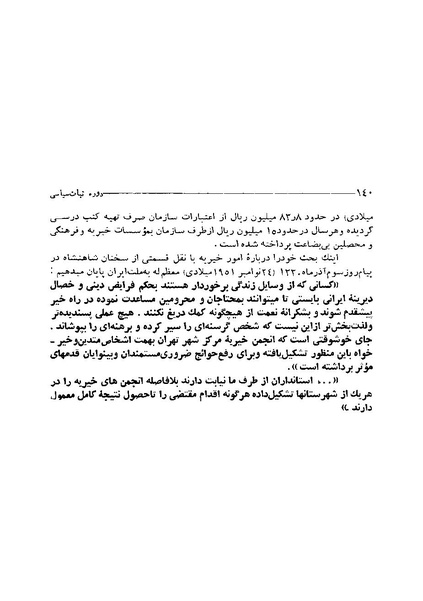 ۱۴۰ دوره ثبات سیاسی
میلادی) در حدود ۸۳٫۸ میلیون ریال از اعتبارات سازمان صرف تهیه کتب درسی
گردیده و هر سال در حدود ۱۵ میلیون ریال از طرف سازمان بمؤسسات خیریه و فرهنگی
و محصلین بی‌بضاعت پرداخته شده است .
اینك بحث خود را دربارهٔ امور خیریه با نقل قسمتی از سخنان شاهنشاه در
پیام روز سوم آذرماه (۲۴ نوامبر ۱۹۵۱ میلادی) معظم‌له به‌ملت ایران پایان میدهیم :
«کسانی که از وسایل زندگی برخوردار هستند بحکم فرایض دینی و خصال
دیرینهٔ ایرانی بایستی تا میتوانند بمحتاجان و محرومین مساعدت نموده در راه خیر
پیشقدم شوند و بشکرانهٔ نعمت از هیچگونه کمك دریغ نکنند . هیچ عملی پسندیده‌تر
ولذت‌بخش‌تر از این نیست که شخص گرسنه‌ای را سیر کرده و برهنه‌ای را بپوشاند .
جای خوشوقتی است که انجمن خیریهٔ مرکز شهر تهران بهمت اشخاص متدین و خیر ـ
خواه باین منظور تشکیل یافته و برای رفع حوائج ضروری مستمندان و بینوایان قدمهای
مؤثر برداشته است» .
«... استانداران از طرف ما نیابت دارند بلافاصله انجمن های خیریه را در
هریك از شهرستانها تشکیل داده هرگونه اقدام مقتضی را تا حصول نتیجهٔ کامل معمول
دارند .»